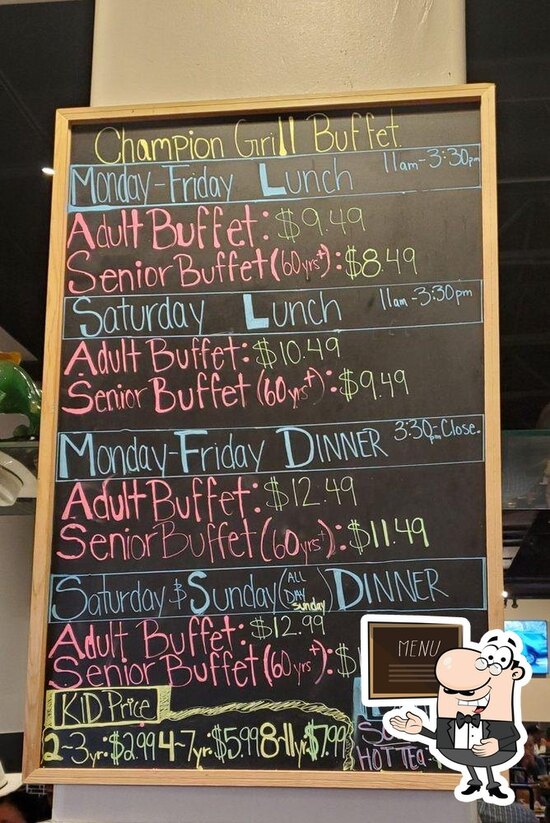 Champion Grill Buffet
Monday-Friday Lunch 11am-3:30pm
Adult Buffet: $9.49
Senior Buffet (60yrs+): $8.49
Saturday Lunch 11am-3:30pm
Adult Buffet: $10.49
Senior Buffet (60yrs+): $9.49
Monday-Friday DINNER 3:30pm-Close.
Adult Buffet: $12.49
Senior Buffet (60yrs+): $11.49
Saturday & Sunday (ALL DAY Sunday) DINNER
Adult Buffet: $12.99
Senior Buffet (60yrs+): $
KID Price
2-3yr: $2.99 4-7yr: $5.99 8-11yr $7.99
HOT TEA
MENU